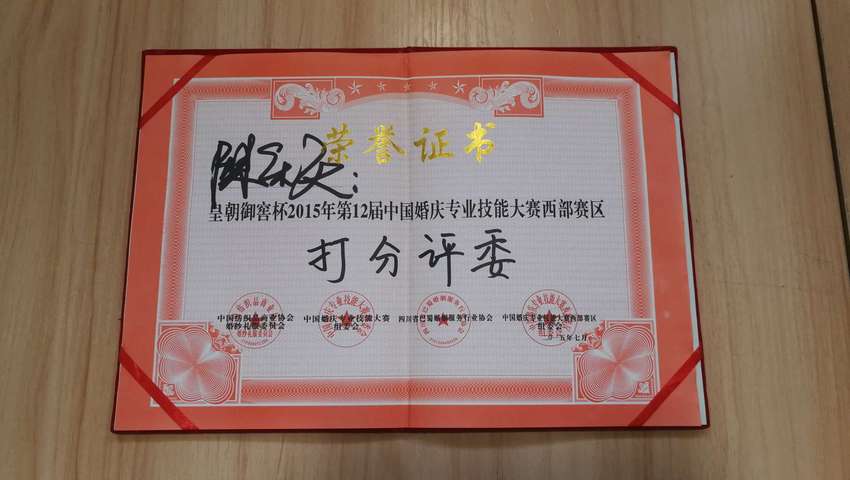 荣誉证书
皇朝御窖杯2015年第12届中国婚庆专业技能大赛西部赛区
打分评委
中国纺织品商业协会
婚纱礼服委员会
中国婚庆专业技能大赛
组委会
四川省巴蜀婚姻服务行业协会
中国婚庆专业技能大赛西部赛区
组委会
五年七月